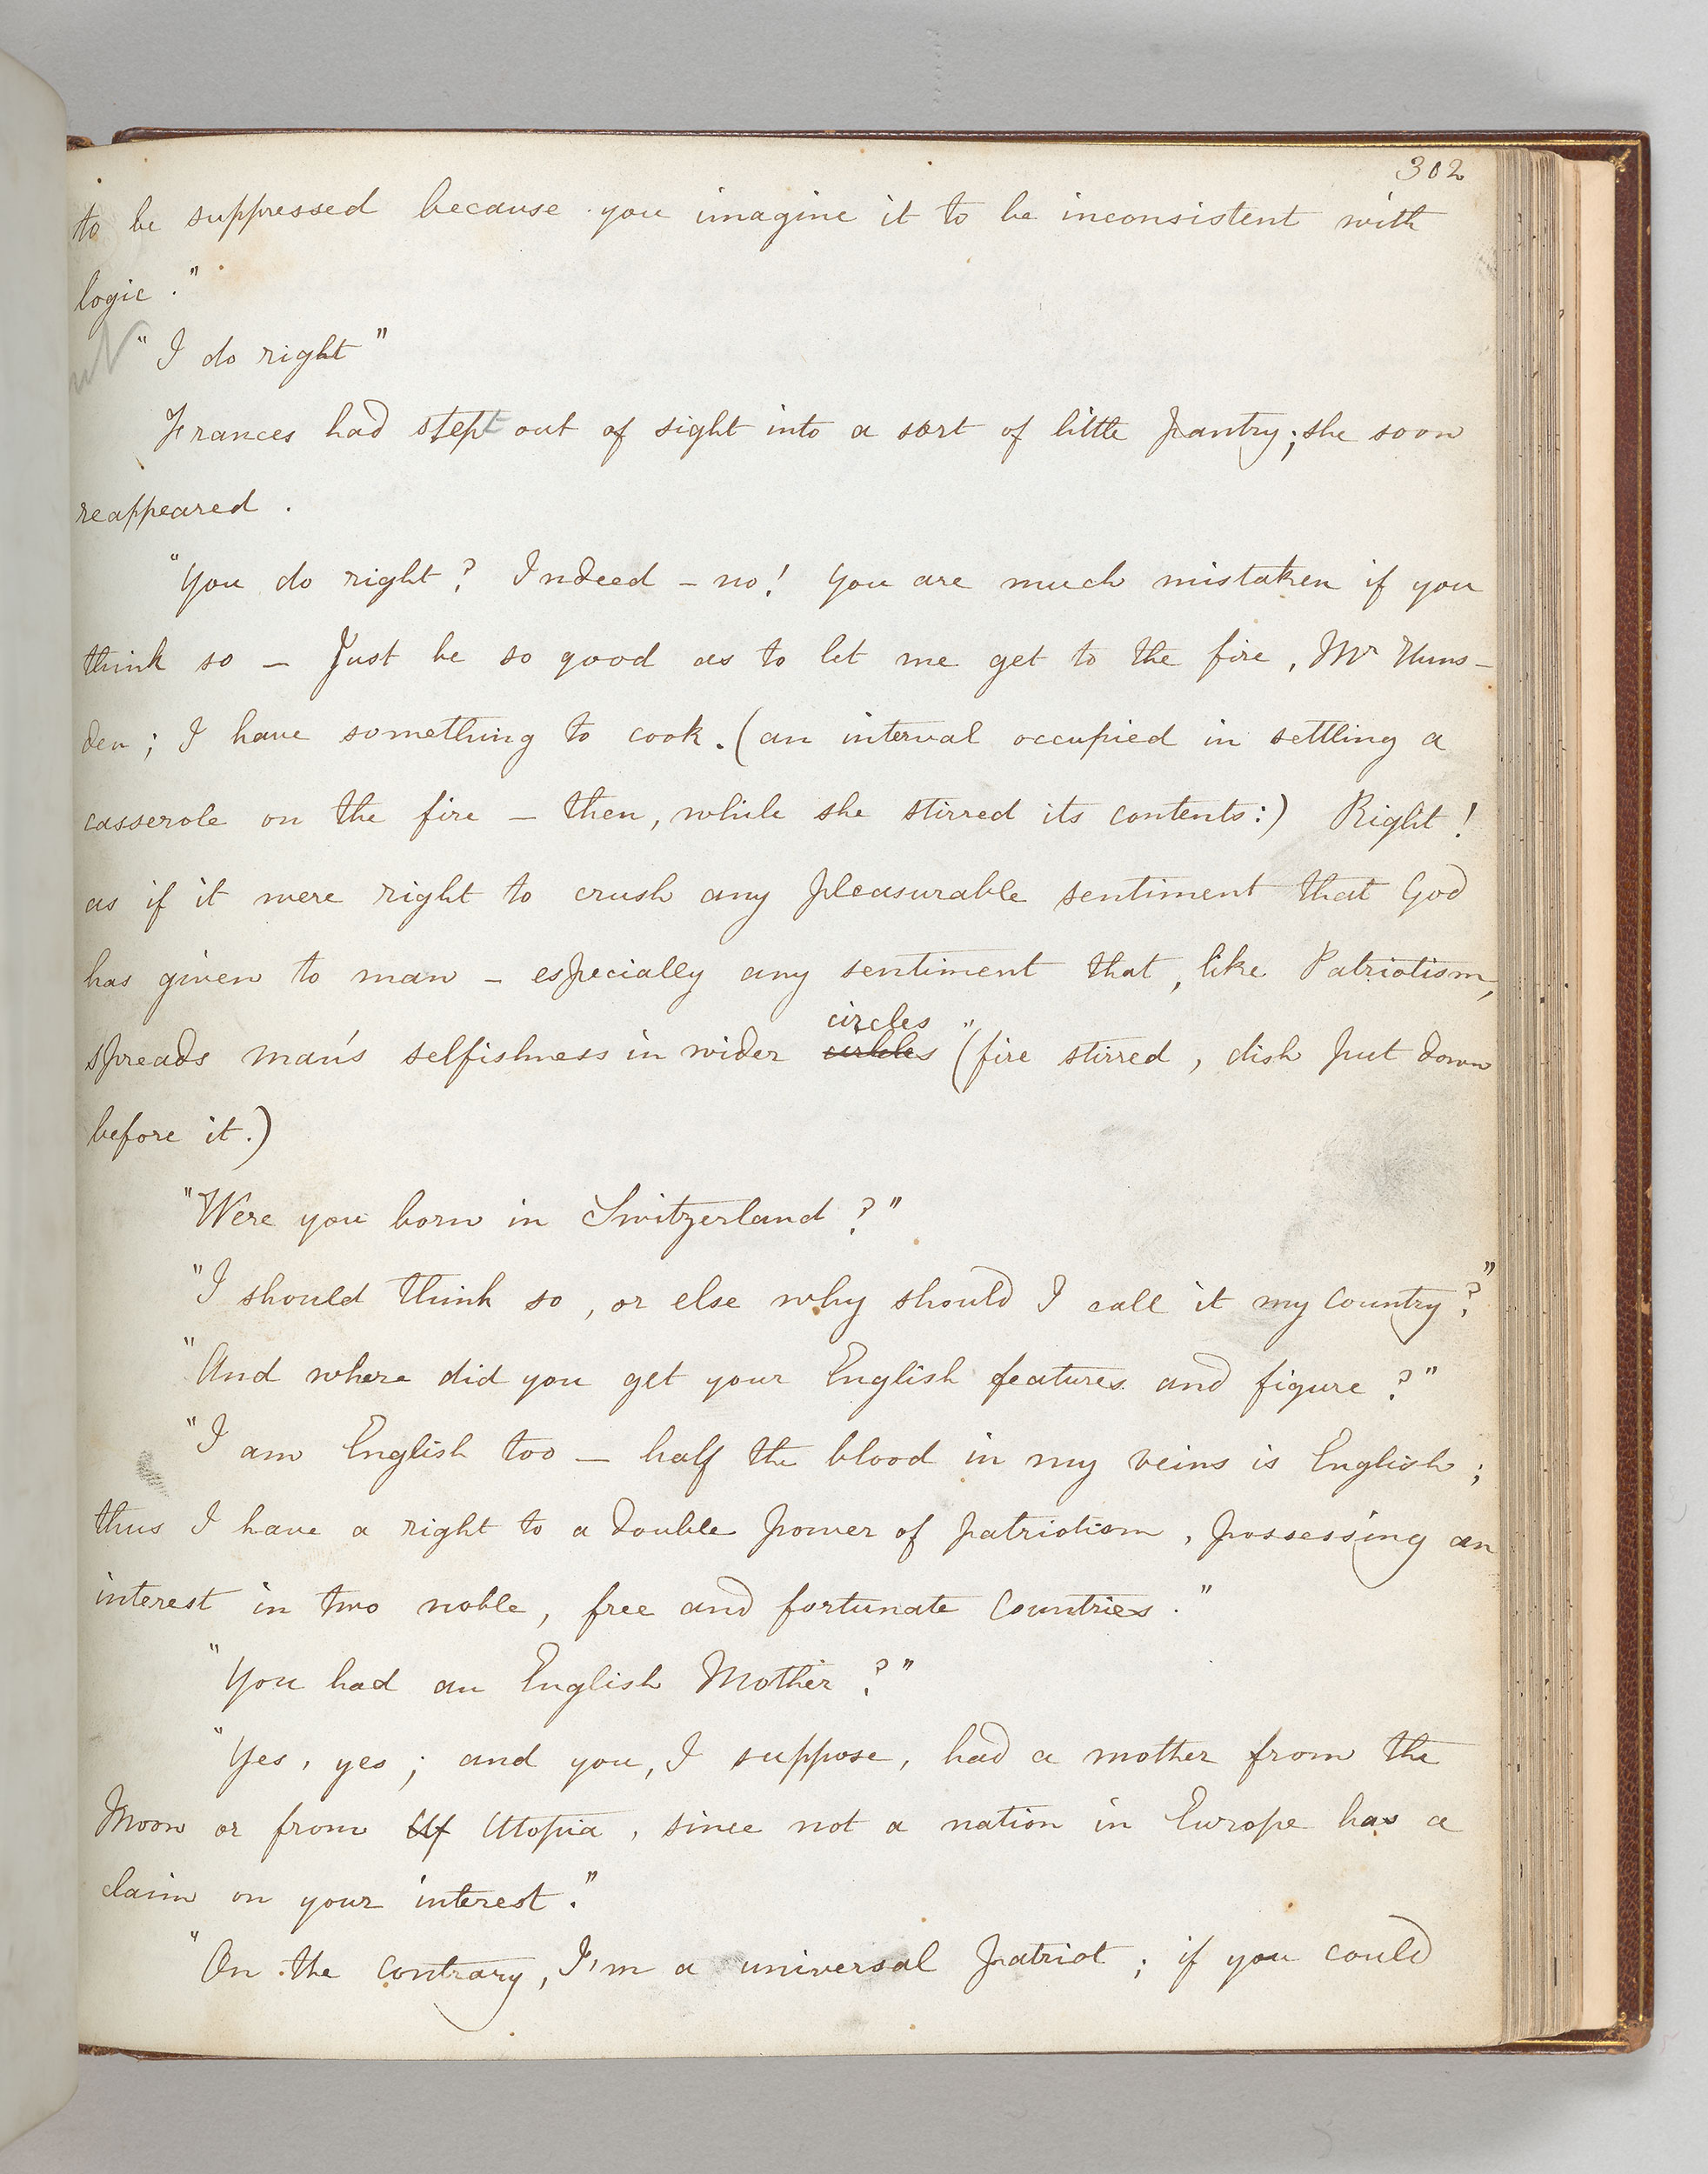 302
to be suppressed because you imagine it to be inconsistent with
logic."
"I do right"
Frances had stept out of sight into a sort of little pantry; she soon
reappeared.
"You do right? Indeed – no! You are much mistaken if you
think so – Just be so good as to let me get to the fire, Mr Huns-
den; I have something to cook. (an interval occupied in settling a
casserole on the fire – then, while she stirred its contents:) Right!
as if it were right to crush any pleasurable sentiment that God
has given to man – especially any sentiment that, like Patriotism,
circles
spreads man's selfishness in wider " (fire stirred, dish put down
before it.)
"Were you born in Switzerland?"
"I should think so, or else why should I call it my country?"
"And where did you get your English features and figure?"
"I am English too – half the blood in my veins is English;
thus I have a right to a double power of patriotism, possessing an
interest in two noble, free and fortunate countries."
"You had an English Mother?"
"Yes, yes; and you, I suppose, had a mother from the
Moon or from Utopia, since not a nation in Europe has a
claim on your interest."
"On the contrary, I'm a universal patriot; if you could